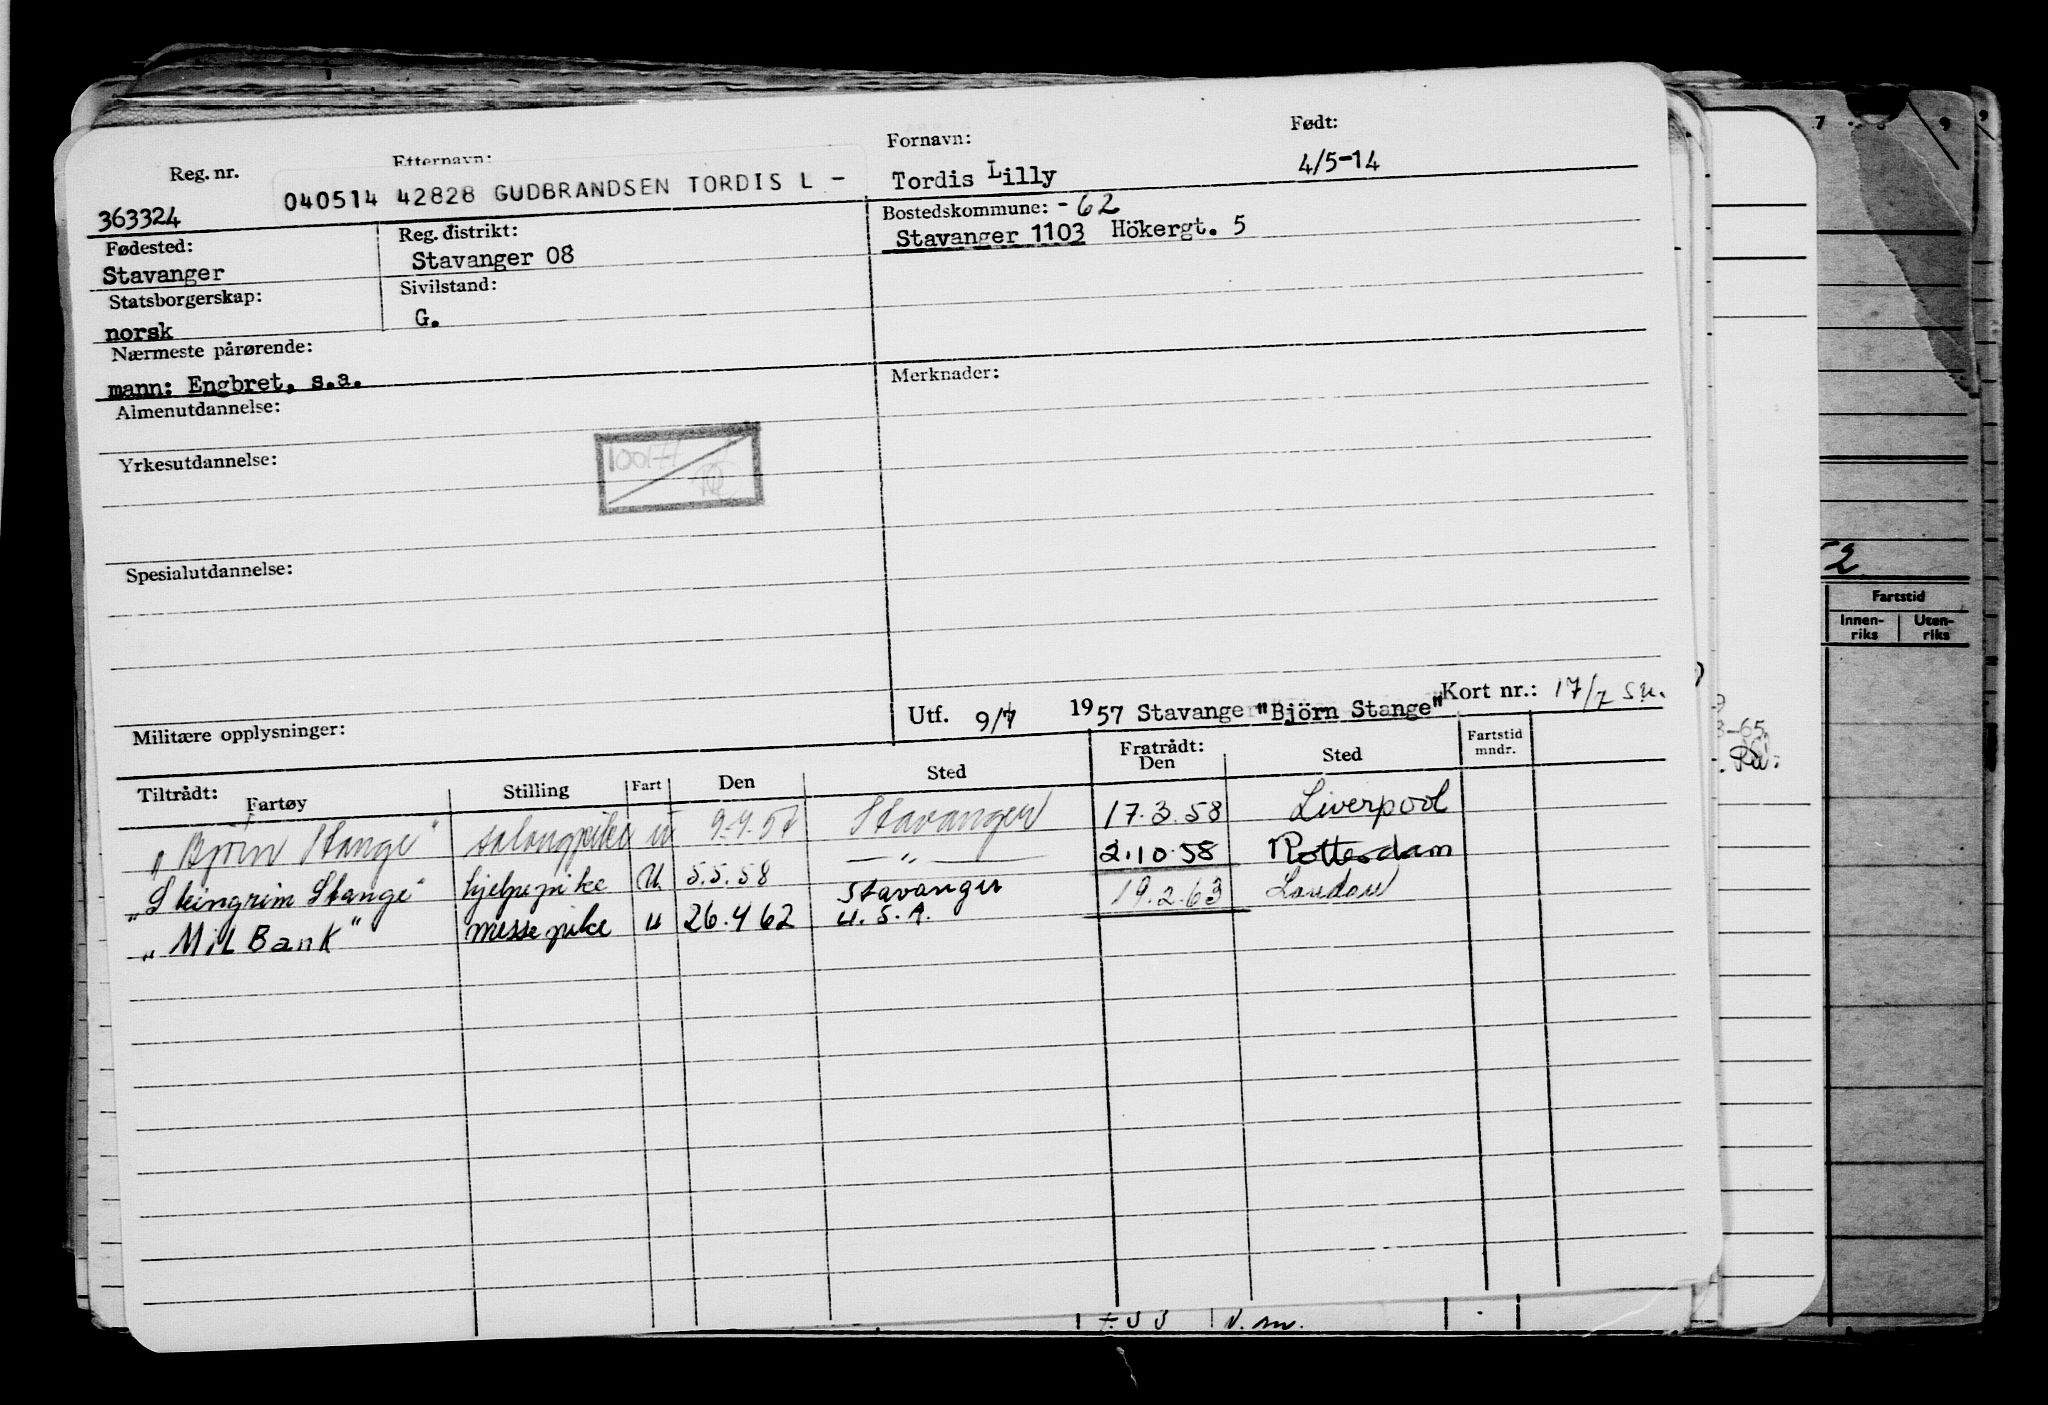 Reg. nr. Etternavn: Fornavn: Født:
363324 040514 42828 GUDBRANDSEN TORDIS L - Tordis Lilly 4/5-14
Fødested: Reg. distrikt: Bostedskommune: -62
Stavanger Stavanger 08 Stavanger 1103 Hökergt. 5
Statsborgerskap: Sivilstand:
norsk G.
Nærmeste pårørende:
mann: Engbret, s.a. Merknader:
Almenutdannelse:
Yrkesutdannelse:
Spesialutdannelse:
Militære opplysninger: Utf. 1957 Stavanger "Björn Stange" Kort nr.: 17/7 su.
Tiltrådt: Fartøy Stilling Fart Den Sted Fratrådt: Den Sted Fartstid mndr.
"Bjørn Stange" salongpike u 9.4.57 Stavanger 17.3.58 Liverpool
"Steingrim Stange" hjelpepike U. 5.5.58 — " — 2.10.58 Rotterdam
"Mil Bank" messepike u 26.4 62 Stavanger U.S.A. 19.2.63 London
Fartstid
Innen-riks Uten-riks